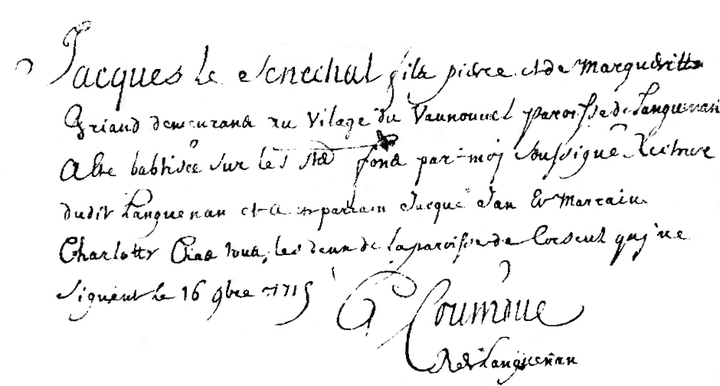 Jacques le Senechal fils pierre et de Margueritte
Briand demeurans au Vilage du Vaunouuel paroisse de Languenan
a Este babtisée sur les sts fons par moj soussigné Recteur
dudit Languenan et a parrain Jacque Jan Et Marraine
Charlotte tous les deux de la paroisse de Corseul quj ne
signent le 16 9bre 1715
G Coumoue
Rr Languenan